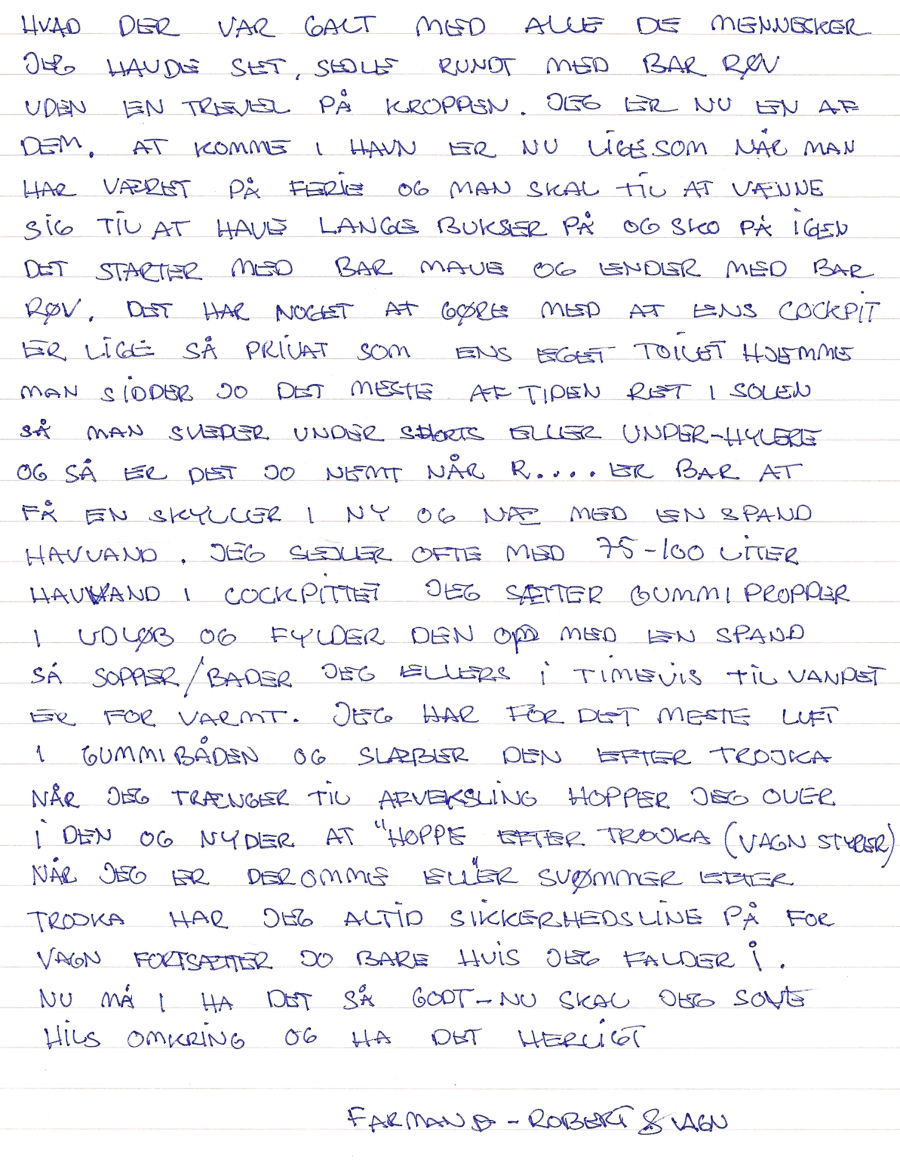 HVAD DER VAR GALT MED ALLE DE MENNESKER
JEG HAVDE SET, SEJLE RUNDT MED BAR RØV
UDEN EN TREVEL PÅ KROPPEN. JEG ER NU EN AF
DEM. AT KOMME I HAVN ER NU LIGESOM NÅR MAN
HAR VÆRET PÅ FERIE OG MAN SKAL TIL AT VÆNNE
SIG TIL AT HAVE LANGE BUKSER PÅ OG SKO PÅ IGEN
DET STARTER MED BAR MAVE OG ENDER MED BAR
RØV. DET HAR NOGET AT GØRE MED AT ENS COCKPIT
ER LIGE SÅ PRIVAT SOM ENS EGET TOILET HJEMME
MAN SIDDER JO DET MESTE AF TIDEN RET I SOLEN
SÅ MAN SVEDER UNDER SHORTS ELLER UNDER-HYLERE
OG SÅ ER DET JO NEMT NÅR R.... ER BAR AT
FÅ EN SKYLLER I NY OG NÆ MED EN SPAND
HAVVAND. JEG SEJLER OFTE MED 75-100 LITER
HAVVAND I COCKPITTET JEG SÆTTER GUMMIPROPPER
I UDLØB OG FYLDER DEN OP MED EN SPAND
SÅ SOPPER/BADER JEG ELLERS I TIMEVIS TIL VANDET
ER FOR VARMT. JEG HAR FOR DET MESTE LUFT
I GUMMIBÅDEN OG SLÆBER DEN EFTER TROJKA
NÅR JEG TRÆNGER TIL AFVEKSLING HOPPER JEG OVER
I DEN OG NYDER AT "HOPPE EFTER TROJKA (VAGN STYRER)
NÅR JEG ER DEROMME ELLER SVØMMER EFTER
TROJKA HAR JEG ALTID SIKKERHEDSLINE PÅ FOR
VAGN FORTSÆTTER JO BARE HVIS JEG FALDER I.
NU MÅ I HA DET SÅ GODT-NU SKAL JEG SOVE
HILS OMKRING OG HA DET HERLIGT
- ROBERT & VAGN